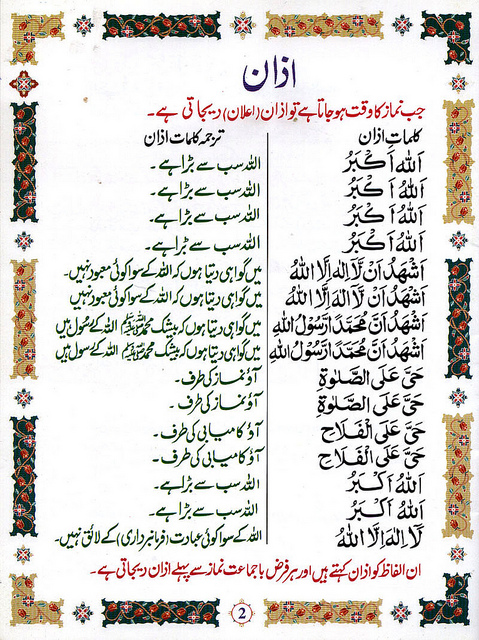 اذان
جب نماز کا وقت ہو جاتا ہے تو اذان (اعلان) دیجاتی ہے۔
کلماتِ اذان ترجمہ کلمات اذان
اَللهُ اَكْبَرُ اللہ سب سے بڑا ہے۔
اَللهُ اَكْبَرُ اللہ سب سے بڑا ہے۔
اَللهُ اَكْبَرُ اللہ سب سے بڑا ہے۔
اَللهُ اَكْبَرُ اللہ سب سے بڑا ہے۔
اَشْهَدُ اَنْ لَّآ اِلٰهَ اِلَّا اللهُ میں گواہی دیتا ہوں کہ اللہ کے سوا کوئی معبود نہیں۔
اَشْهَدُ اَنْ لَّآ اِلٰهَ اِلَّا اللهُ میں گواہی دیتا ہوں کہ اللہ کے سوا کوئی معبود نہیں
اَشْهَدُ اَنَّ مُحَمَّدًا رَّسُوْلُ اللهِ میں گواہی دیتا ہوں کہ بیشک محمد ﷺ اللہ کے رسول ہیں
اَشْهَدُ اَنَّ مُحَمَّدًا رَّسُوْلُ اللهِ میں گواہی دیتا ہوں کہ بیشک محمد ﷺ اللہ کے رسول ہیں
حَيَّ عَلَى الصَّلٰوةِ آؤ نماز کی طرف۔
حَيَّ عَلَى الصَّلٰوةِ آؤ نماز کی طرف۔
حَيَّ عَلَى الْفَلَاحِ آؤ کامیابی کی طرف۔
حَيَّ عَلَى الْفَلَاحِ آؤ کامیابی کی طرف۔
اَللهُ اَكْبَرُ اللہ سب سے بڑا ہے۔
اَللهُ اَكْبَرُ اللہ سب سے بڑا ہے۔
لَآ اِلٰهَ اِلَّا اللهُ اللہ کے سوا کوئی عبادت (فرمانبرداری) کے لائق نہیں۔
ان الفاظ کو اذان کہتے ہیں اور ہر فرض باجماعت نماز سے پہلے اذان دیجاتی ہے۔
2